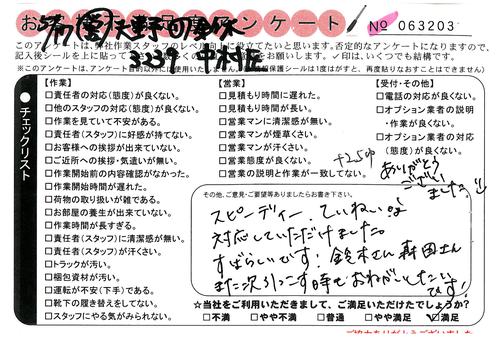 アンケート
No 063203
3239 中村区
このアンケートは、弊社作業スタッフのレベル向上に役立てたいと思います。否定的なアンケートになりますので、
記入後シールを上に貼って
お願いします。✓印は、いくつでも結構です。
※このアンケートは、アンケート目的以外に使用いたしません。
保護シールは1度はがすと、再度貼りなおすことはできません)
●チェックリスト
【作業】
□責任者の対応(態度)が良くない。
□他のスタッフの対応(態度)が良くない。
□作業を見ていて不安がある。
□責任者(スタッフ)に好感が持てない。
□お客様への挨拶が出来ていない。
□ご近所への挨拶・気遣いが無い。
□作業開始前の内容確認がなかった。
□作業開始時間が遅れた。
□荷物の取り扱いが雑である。
□お部屋の養生が出来ていない。
□作業時間が長すぎる。
□責任者(スタッフ)に清潔感が無い。
□責任者(スタッフ)が汗くさい。
□トラックが汚い。
□梱包資材が汚い。
□運転が不安(下手)である。
□靴下の履き替えをしてない。
□スタッフにやる気がみられない。
【営業】
□見積もり時間に遅れた。
□見積もり時間が長い。
□営業マンに清潔感が無い。
□営業マンが煙草くさい。
□営業マンが汗くさい。
□営業態度が良くない。
□営業の説明と作業が一致してない。
【受付・その他】
□電話の対応が良くない。
□オプション業者の説明
・作業が良くない。
□オプション業者の対応
(態度)が良くない。
ありがとう
ござい
ました
その他、ご意見・ご要望等ありましたらお書き下さい。
スピーディー、ていねいな
対応していただけました。
すばらしいです! 鈴木さん 森田さん
また次引っこす時もおねがいしたい
です!
☆当社をご利用いただきまして、ご満足いただけたでしょうか?
□不満 □やや不満 □普通 □やや満足 ☑満足
ご協力ありがとうございました